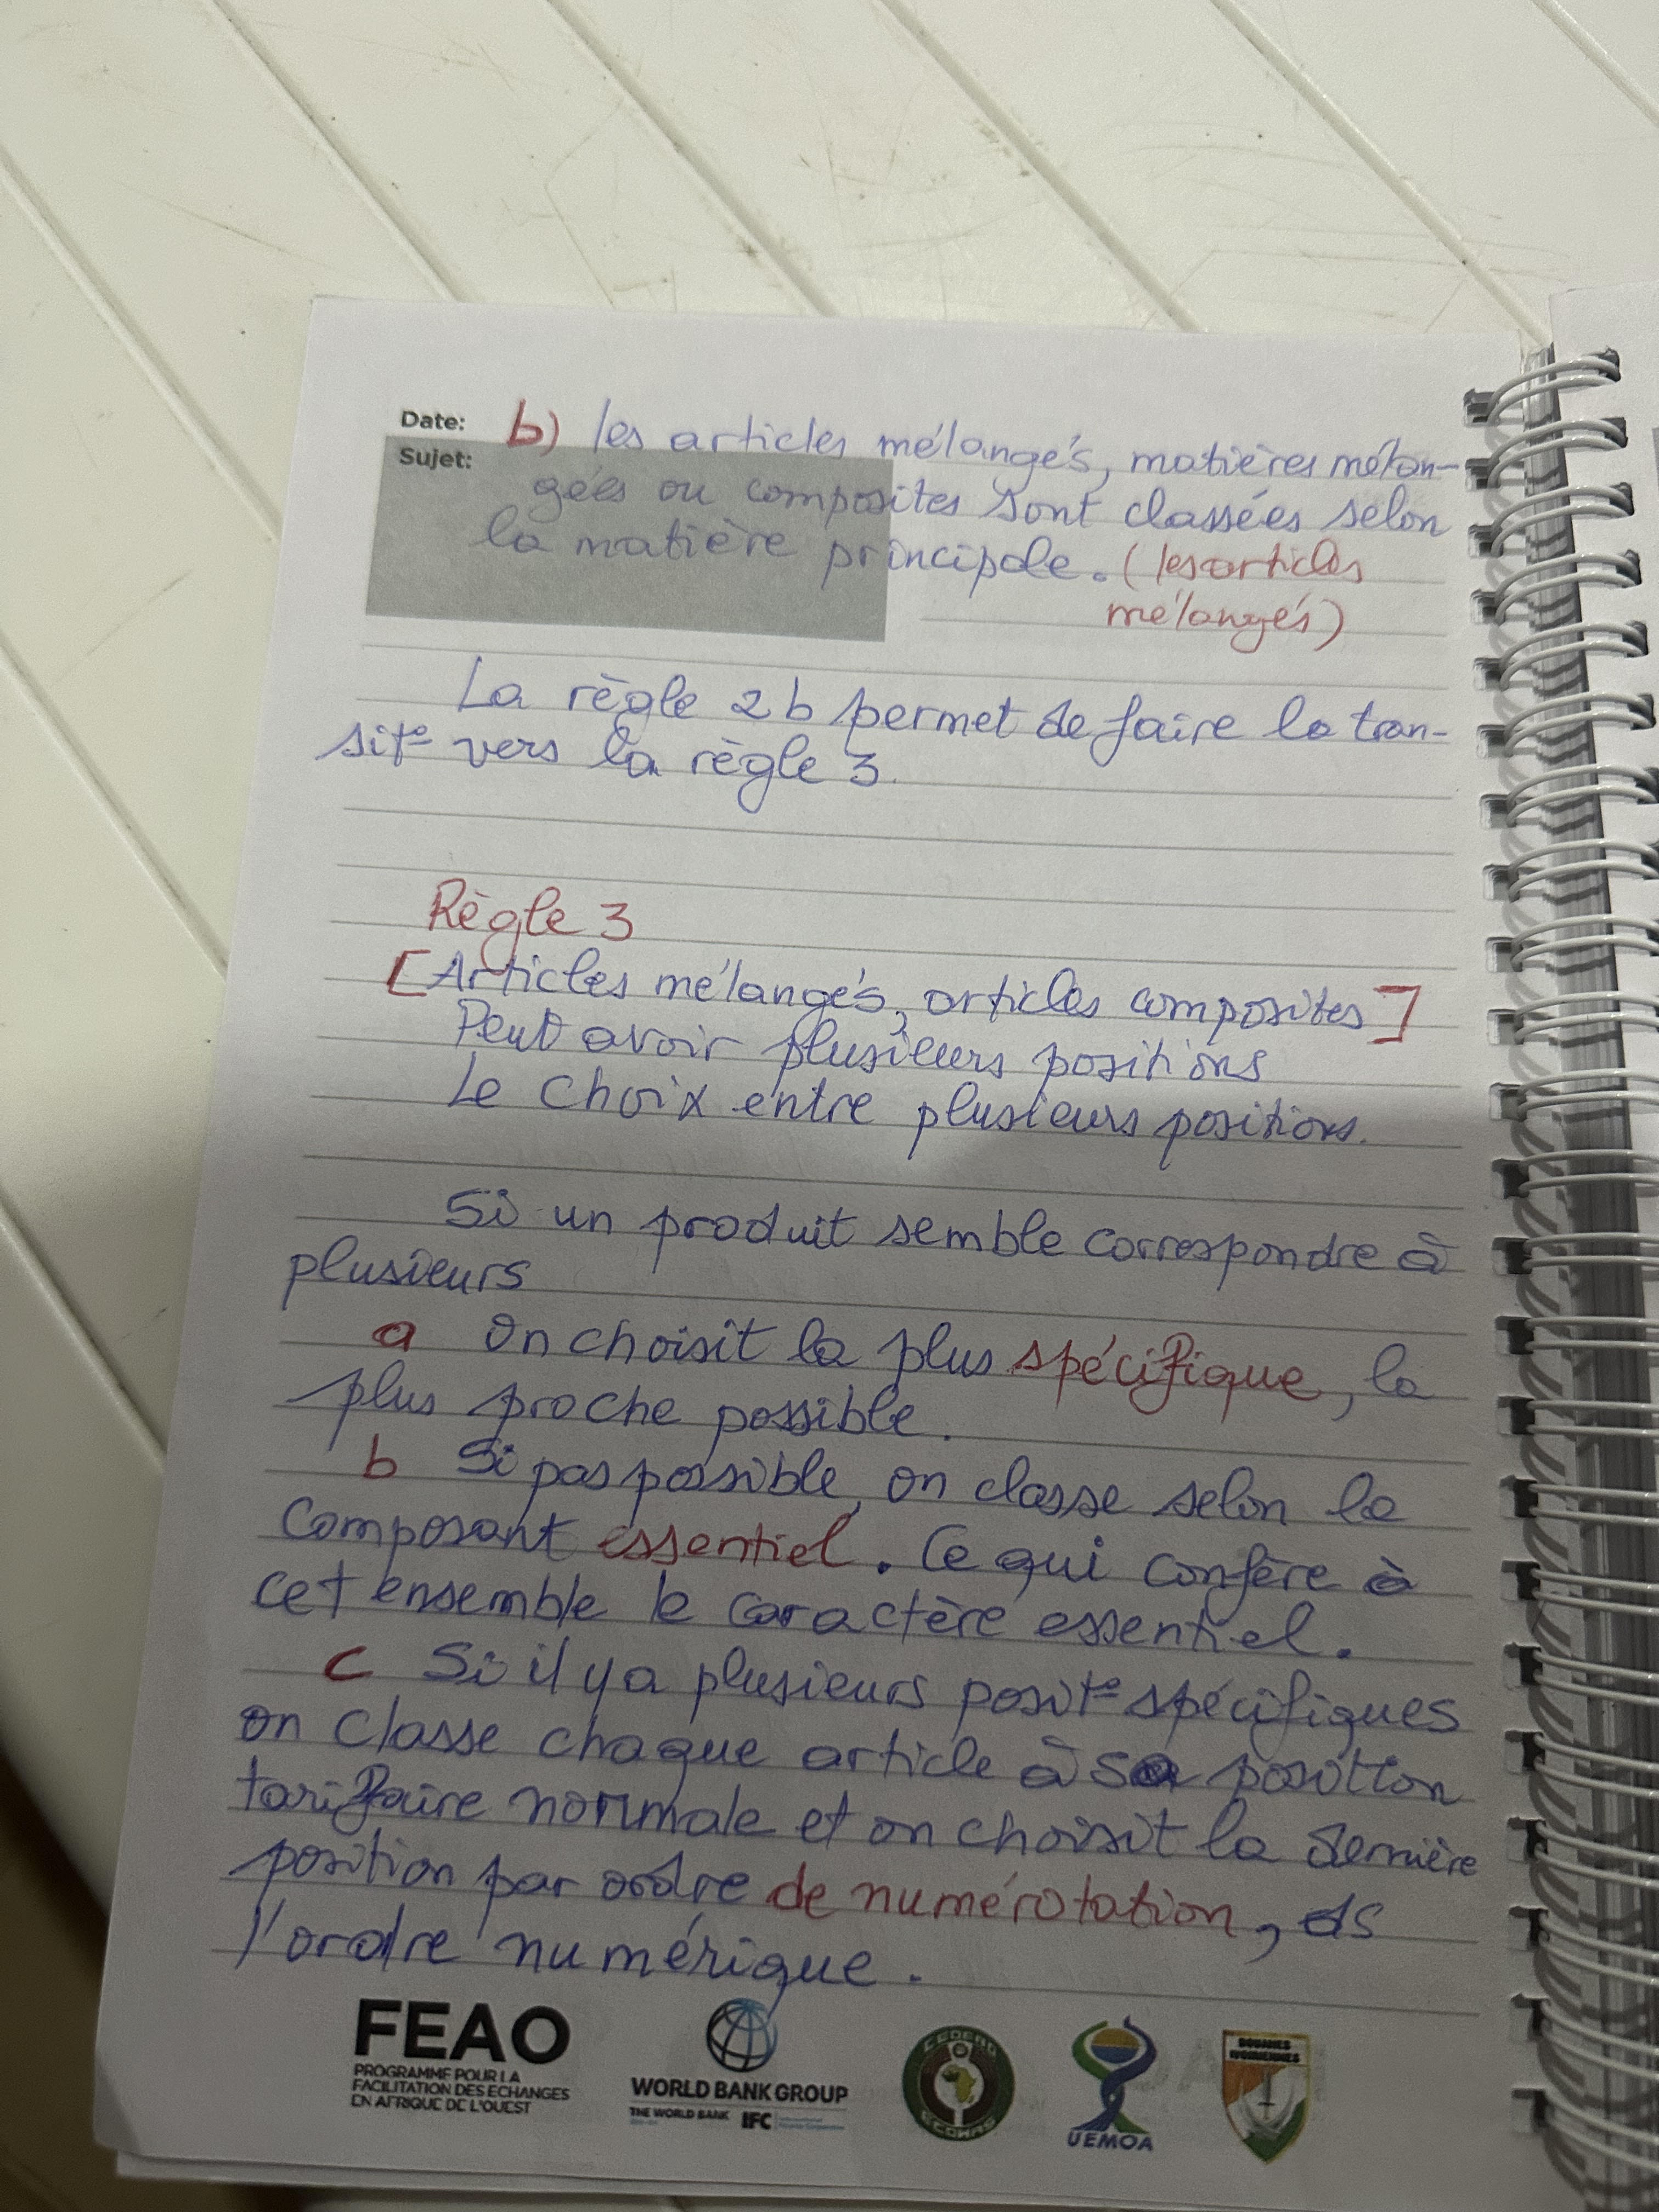 Date: b) les articles mélangés, matières mélan-
Sujet: gées ou composites sont classées selon
la matière principale. (les articles
mélangés)
La règle 2 b permet de faire la tran-
sit° vers la règle 3.
Règle 3
[Articles mélangés, articles composites]
Peut avoir plusieurs positions
Le choix entre plusieurs positions.
Si un produit semble correspondre à
plusieurs
a On choisit la plus spécifique, la
plus proche possible.
b Si pas possible, on classe selon le
composant essentiel. Ce qui confère à
cet ensemble le caractère essentiel.
c Si il y a plusieurs posit° spécifiques
on classe chaque article à sa position
tariffaire normale et on choisit la dernière
position par ordre de numérotation, ds
l'ordre numérique.
FEAO
PROGRAMME POUR LA
FACILITATION DES ECHANGES
EN AFRIQUE DE L'OUEST
WORLD BANK GROUP
THE WORLD BANK IFC
CEDEAO
ECOWAS
UEMOA
DOUANES
IVOIRIENNES